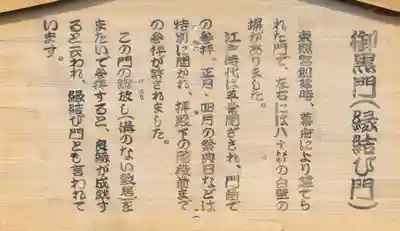 御黒門(縁結び門)
東照宮創建時、幕府により建てら
れた門で、左右には八十間の白壁の
塀がありました。
江戸時代は平素閉ざされ、門前で
の参拝。正月、四月の祭典日などは
特別に開かれ、拝殿下の階段前まで
の参拝が許されました。
この門の蹴放し(溝のない敷居)を
またいで参拝すると、良縁が成就す
ると云われ、縁結び門とも言われて
います。